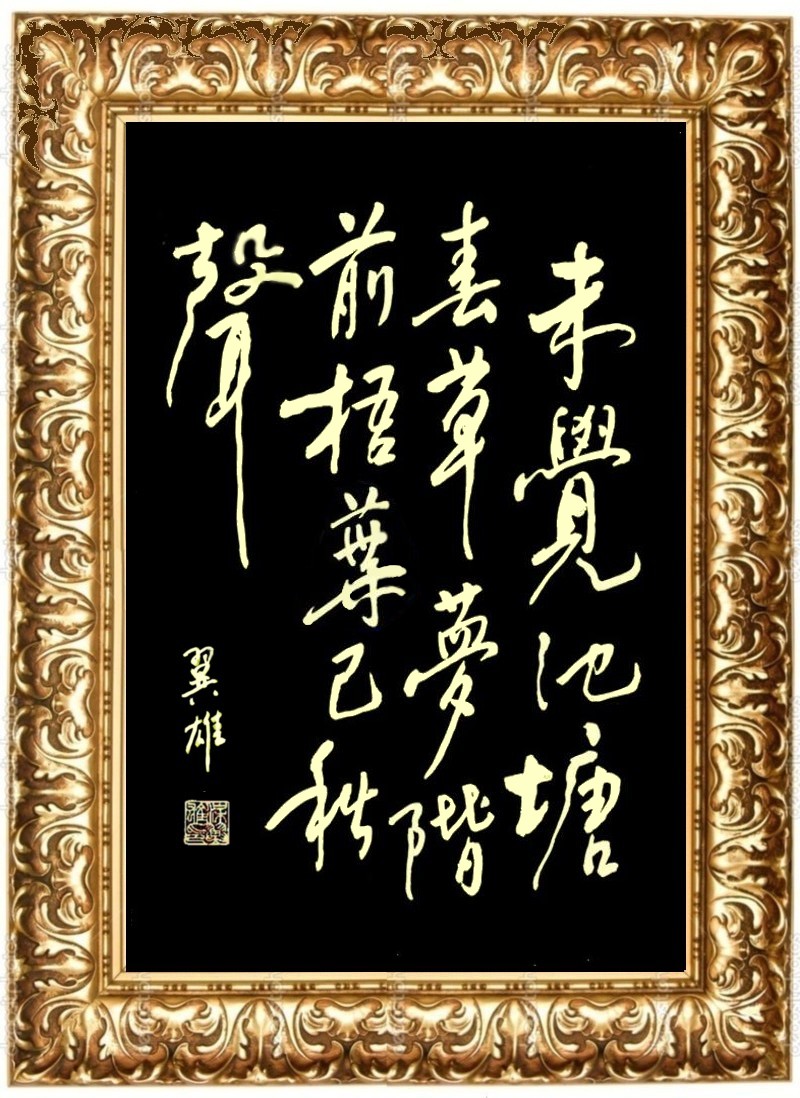 未覺池塘
春草夢階
前梧葉已秋
聲
翼雄